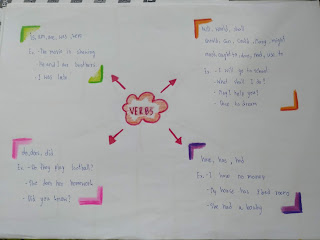 is, am, are, was, were
Ex. - The movie is
He and I are brothers
- I was late
will, would, shall
should, can, could, may, might
must, ought to, dare, need, used to
Ex. - I will go to school
- What shall I do?
- May I help you?
- Dare to dream
VERBS
do, does, did
Ex. - Do they play football?
- She does her homework
- Did you know?
have, has, had
Ex. - I have no money
- My house has rooms
- She had a